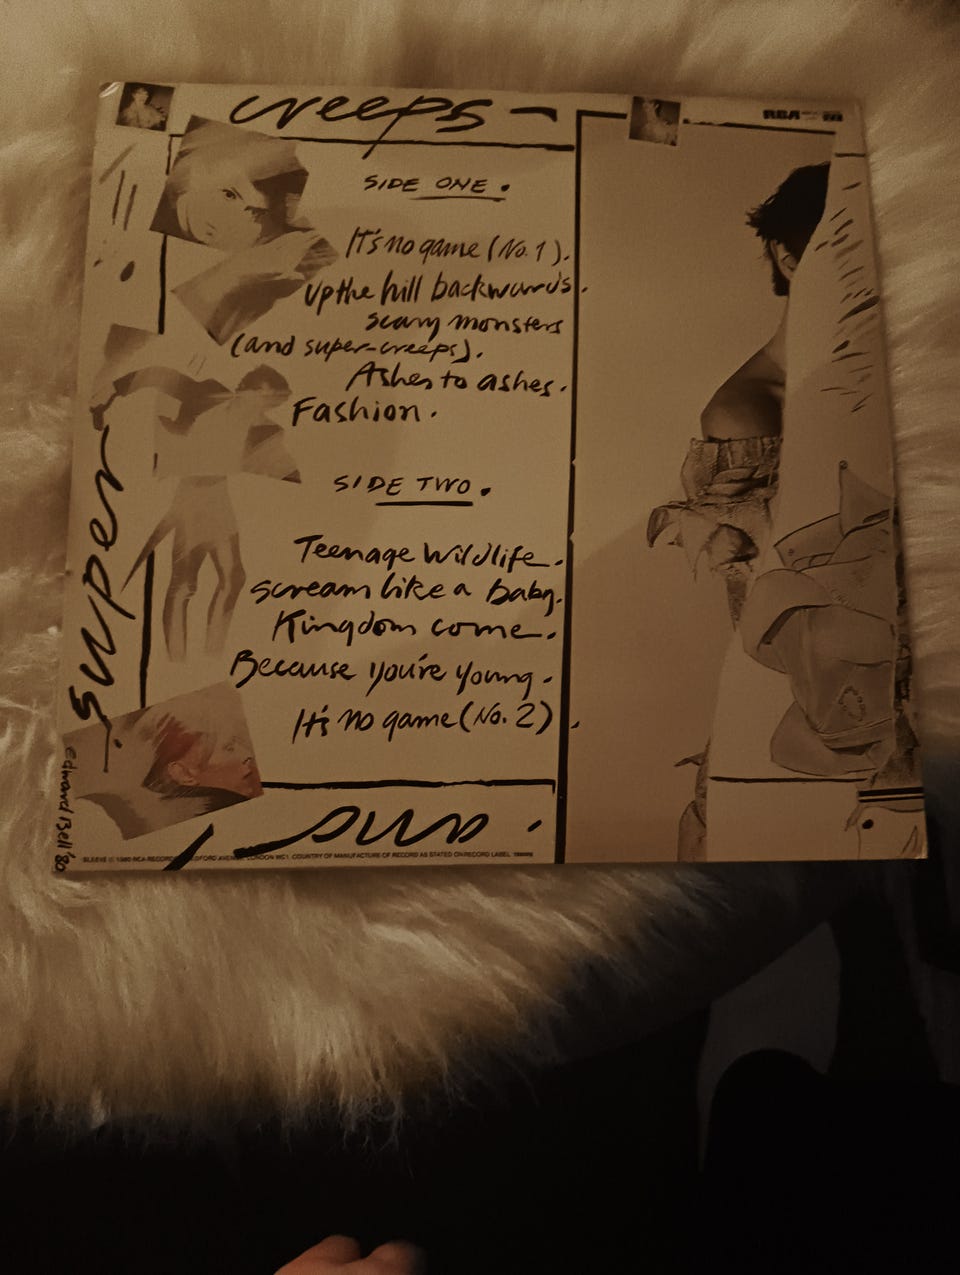 creeps -
RCA
SIDE ONE.
It's no game (No. 1).
Up the hill backwards.
scary monsters
(and super-creeps).
Ashes to ashes.
Fashion.
SIDE TWO.
Teenage Wildlife.
scream like a baby.
Kingdom come.
Because you're young.
It's no game (No. 2).
super
Edward Bell '80
SLEEVE © 1980 RCA RECORDS, BEDFORD AVENUE, LONDON WC1. COUNTRY OF MANUFACTURE OF RECORD AS STATED ON RECORD LABEL